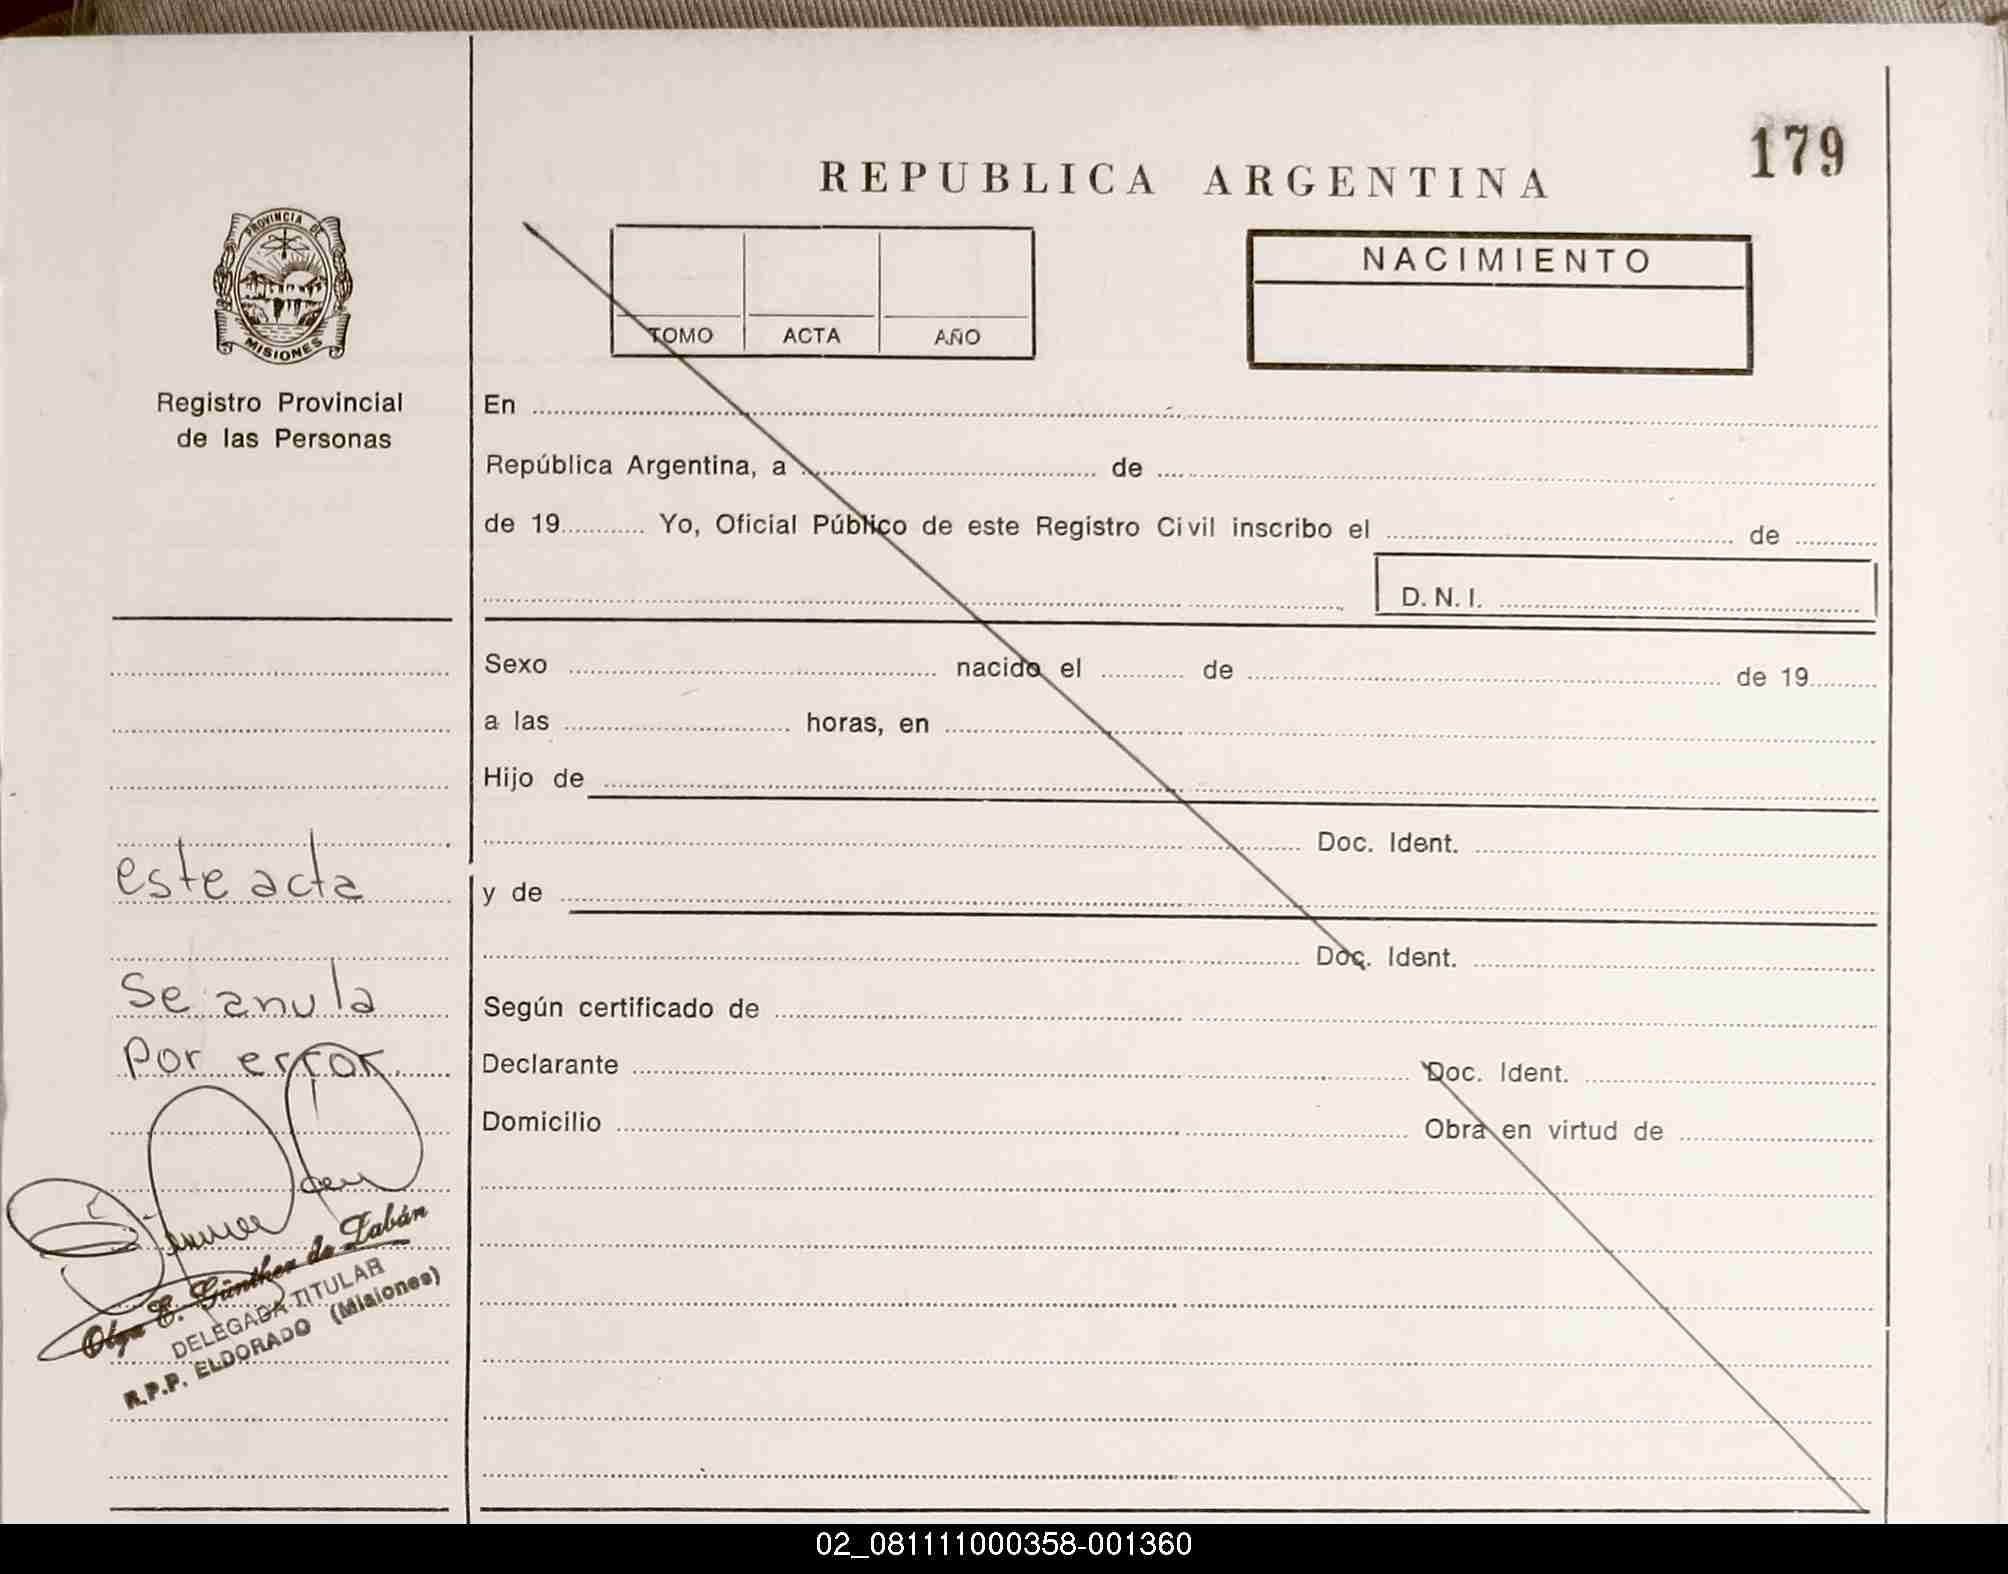 179
REPUBLICA ARGENTINA
PROVINCIA DE
MISIONES
Registro Provincial
de las Personas
TOMO ACTA AÑO
NACIMIENTO
En
República Argentina, a de
de 19 Yo, Oficial Público de este Registro Civil inscribo el de
D. N. I.
Sexo nacido el de de 19
a las horas, en
Hijo de
Doc. Ident.
y de
Doc. Ident.
Según certificado de
Declarante Doc. Ident.
Domicilio Obra en virtud de
este acta
Se anula
por error.
Olga E. Günther de Zabán
DELEGADA TITULAR
R.P.P. ELDORADO (Misiones)
02_081111000358-001360